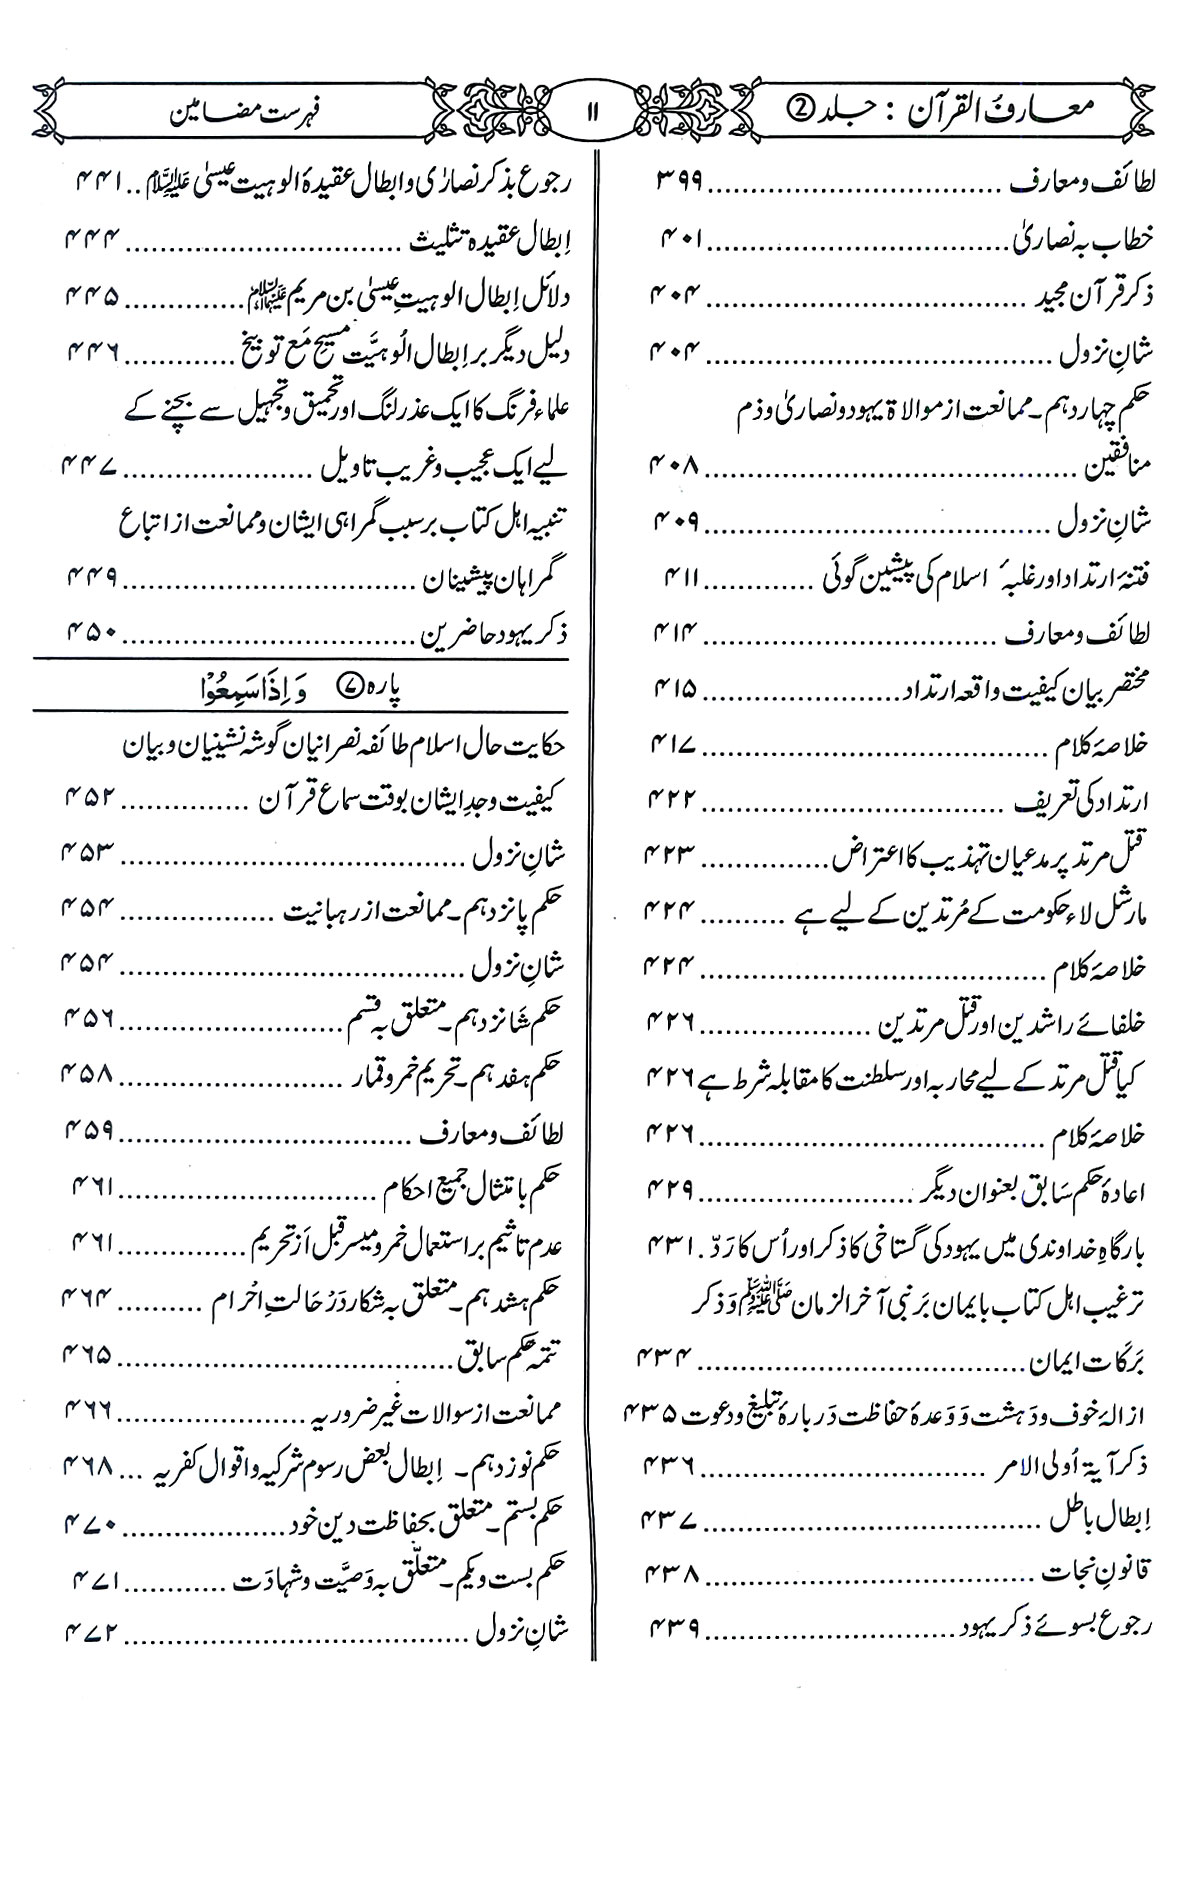 معارفُ القرآن : جلد ②
۱۱
فہرست مضامین
لطائف و معارف ................................. ۳۹۹
خطاب بہ نصاریٰ ................................. ۴۰۱
ذکر قرآن مجید ................................. ۴۰۴
شانِ نزول ................................. ۴۰۴
حکم چہار دہم۔ ممانعت از موالاۃ یہود و نصاریٰ و ذم
منافقین ................................. ۴۰۸
شانِ نزول ................................. ۴۰۹
فتنۂ ارتداد اور غلبۂ اسلام کی پیشین گوئی ............. ۴۱۱
لطائف و معارف ................................. ۴۱۴
مختصر بیان کیفیت واقعہ ارتداد ....................... ۴۱۵
خلاصۂ کلام ................................. ۴۱۷
ارتداد کی تعریف ................................. ۴۲۲
قتل مرتد پر مدعیان تہذیب کا اعتراض ............... ۴۲۳
مارشل لاء حکومت کے مُرتدین کے لیے ہے .......... ۴۲۴
خلاصۂ کلام ................................. ۴۲۴
خلفائے راشدین اور قتل مرتدین .................... ۴۲۶
کیا قتل مرتد کے لیے محاربہ اور سلطنت کا مقابلہ شرط ہے ۴۲۶
خلاصۂ کلام ................................. ۴۲۶
اعادۂ حکم سَابق بعنوان دیگر ......................... ۴۲۹
بارگاہِ خداوندی میں یہود کی گستاخی کا ذکر اور اُس کا رَدّ . ۴۳۱
ترغیب اہل کتاب بایمان بَر نبی آخر الزمان ﷺ وَ ذکر
بَرَکَات ایمان ................................. ۴۳۴
ازالۂ خوف و دَہشت وَ وَعدۂ حفاظت دَربارۂ تبلیغ و دعوت ۴۳۵
ذکر آیۃ اُولی الامر ................................. ۴۳۶
اِبطال باطل ................................. ۴۳۷
قانونِ نجات ................................. ۴۳۸
رجوع بسوئے ذکر یہود ............................. ۴۳۹
رجوع بذکر نصارٰی و ابطال عقیدۂ الوہیت عیسیٰ علیہ السلام .. ۴۴۱
اِبطال عقیدہ تثلیث ................................. ۴۴۴
دلائل اِبطال الوہیتِ عیسیٰ بن مریم علیہما السلام .............. ۴۴۵
دلیل دیگر بر اِبطال الُوہیَّت مسیح مَع توبیخ ............. ۴۴۶
علماء فرنگ کا ایک عذر لنگ اور تحمیق و تجہیل سے بچنے کے
لیے ایک عجیب و غریب تاویل ....................... ۴۴۷
تنبیہ اہل کتاب بر سبب گمراہی ایشان و ممانعت از اتباع
گمراہان پیشینان ................................. ۴۴۹
ذکر یہود حاضرین ................................. ۴۵۰
پارہ ⑦ وَاِذَا سَمِعُوْا
حکایت حال اسلام طائفہ نصرانیان گوشہ نشینیان و بیان
کیفیت وجدِ ایشان بوقت سماع قرآن ............... ۴۵۲
شانِ نزول ................................. ۴۵۳
حکم پانزدہم۔ ممانعت از رہبانیت .................. ۴۵۴
شانِ نزول ................................. ۴۵۴
حکم شانزدہم۔ متعلق بہ قسم .......................... ۴۵۶
حکم ہفدہم۔ تحریم خمر و قمار .......................... ۴۵۸
لطائف و معارف ................................. ۴۵۹
حکم بامتثال جمیع احکام ............................. ۴۶۱
عدم تاثیم بر استعمال خمر و میسر قبل اَز تحریم ............... ۴۶۱
حکم ہشدہم۔ متعلق بہ شکار دَرْ حَالتِ اِحْرام .......... ۴۶۴
تتمہ حکم سابق ................................. ۴۶۵
ممانعت از سوالات غیر ضروریہ ...................... ۴۶۶
حکم نوزدہم۔ اِبطال بعض رسوم شرکیہ و اقوال کفریہ ... ۴۶۸
حکم بستم۔ متعلق بحفاظت دین خود ................... ۴۷۰
حکم بست و یکم۔ متعلّق بہ وَصیَّت و شہادَت ............ ۴۷۱
شانِ نزول ................................. ۴۷۲